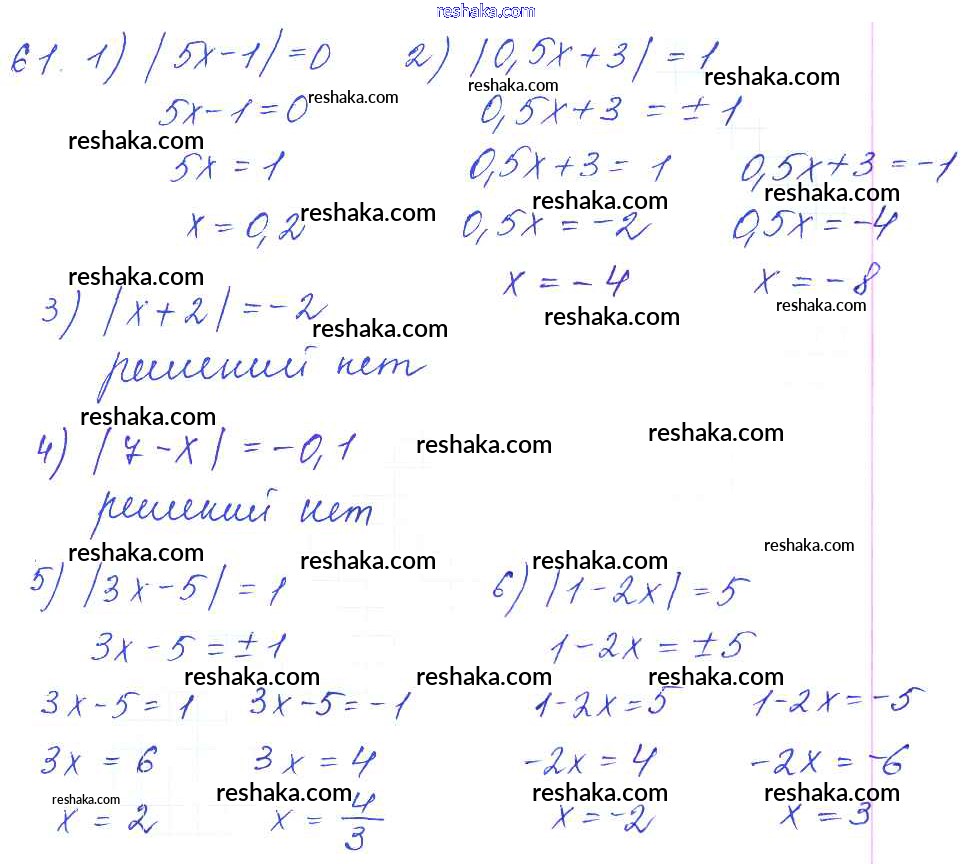 reshaka.com
61. 1) |5x-1|=0 2) |0,5x+3|=1
reshaka.com reshaka.com reshaka.com
5x-1=0 0,5x+3=±1
reshaka.com
5x=1 0,5x+3=1 0,5x+3=-1
reshaka.com reshaka.com reshaka.com
x=0,2 0,5x=-2 0,5x=-4
reshaka.com
x=-4 x=-8
3) |x+2|=-2
reshaka.com reshaka.com reshaka.com
решений нет
reshaka.com reshaka.com reshaka.com
4) |7-x|=-0,1
решений нет
reshaka.com reshaka.com reshaka.com reshaka.com
5) |3x-5|=1 6) |1-2x|=5
3x-5=±1 1-2x=±5
reshaka.com reshaka.com reshaka.com
3x-5=1 3x-5=-1 1-2x=5 1-2x=-5
3x=6 3x=4 -2x=4 -2x=-6
reshaka.com reshaka.com reshaka.com reshaka.com
x=2 x=4/3 x=-2 x=3